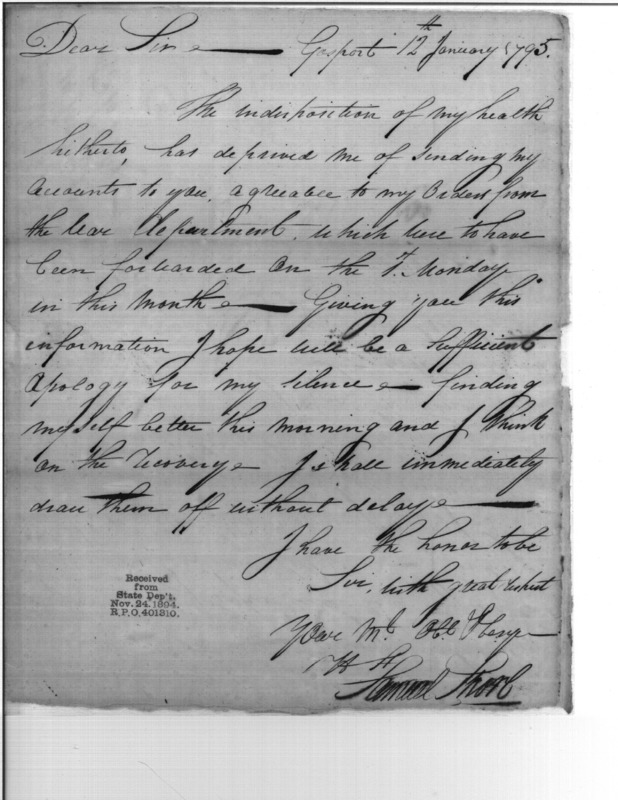 Dear Sir Gosport 12th January 1795.
The indisposition of my health
hitherto, has deprived me of sending my
accounts to you, agreeable to my Orders from
the War department. which were to have
been forwarded on the Monday
in this Month Giving you this
information I hope will be a sufficient
apology for my silence finding
myself better this morning and I think
on the recovery I shall immediately
draw them off without delay
I have the honor to be
Sir, with great respect
Your Mt Obt
Samuel
Received
from
State Dep't.
Nov. 24. 1894.
R.P.O. 401310.